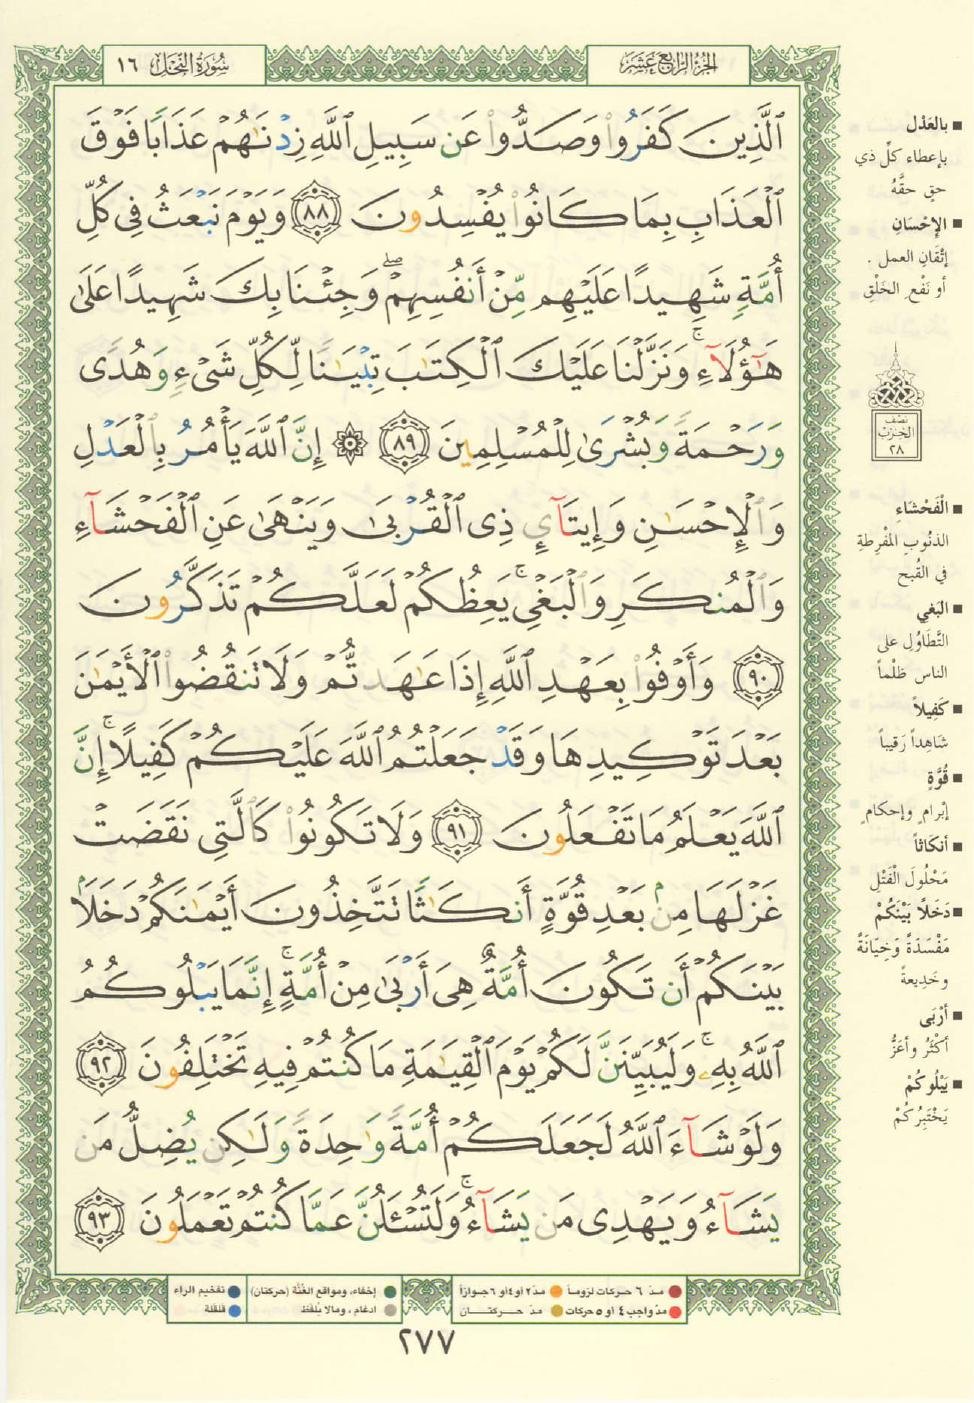 سُورَةُ النَّحْلِ ١٦
الجُزْءُ الرَّابِعَ عَشَرَ
ٱلَّذِينَ كَفَرُوا۟ وَصَدُّوا۟ عَن سَبِيلِ ٱللَّهِ زِدْنَٰهُمْ عَذَابًا فَوْقَ
ٱلْعَذَابِ بِمَا كَانُوا۟ يُفْسِدُونَ ﴿٨٨﴾ وَيَوْمَ نَبْعَثُ فِى كُلِّ
أُمَّةٍ شَهِيدًا عَلَيْهِم مِّنْ أَنفُسِهِمْ ۖ وَجِئْنَا بِكَ شَهِيدًا عَلَىٰ
هَٰٓؤُلَآءِ ۚ وَنَزَّلْنَا عَلَيْكَ ٱلْكِتَٰبَ تِبْيَٰنًا لِّكُلِّ شَىْءٍ وَهُدًى
وَرَحْمَةً وَبُشْرَىٰ لِلْمُسْلِمِينَ ﴿٨٩﴾ ۞ إِنَّ ٱللَّهَ يَأْمُرُ بِٱلْعَدْلِ
وَٱلْإِحْسَٰنِ وَإِيتَآئِ ذِى ٱلْقُرْبَىٰ وَيَنْهَىٰ عَنِ ٱلْفَحْشَآءِ
وَٱلْمُنكَرِ وَٱلْبَغْىِ ۚ يَعِظُكُمْ لَعَلَّكُمْ تَذَكَّرُونَ
﴿٩٠﴾ وَأَوْفُوا۟ بِعَهْدِ ٱللَّهِ إِذَا عَٰهَدتُّمْ وَلَا تَنقُضُوا۟ ٱلْأَيْمَٰنَ
بَعْدَ تَوْكِيدِهَا وَقَدْ جَعَلْتُمُ ٱللَّهَ عَلَيْكُمْ كَفِيلًا ۚ إِنَّ
ٱللَّهَ يَعْلَمُ مَا تَفْعَلُونَ ﴿٩١﴾ وَلَا تَكُونُوا۟ كَٱلَّتِى نَقَضَتْ
غَزْلَهَا مِنۢ بَعْدِ قُوَّةٍ أَنكَٰثًا تَتَّخِذُونَ أَيْمَٰنَكُمْ دَخَلًۢا
بَيْنَكُمْ أَن تَكُونَ أُمَّةٌ هِىَ أَرْبَىٰ مِنْ أُمَّةٍ ۚ إِنَّمَا يَبْلُوكُمُ
ٱللَّهُ بِهِۦ ۚ وَلَيُبَيِّنَنَّ لَكُمْ يَوْمَ ٱلْقِيَٰمَةِ مَا كُنتُمْ فِيهِ تَخْتَلِفُونَ ﴿٩٢﴾
وَلَوْ شَآءَ ٱللَّهُ لَجَعَلَكُمْ أُمَّةً وَٰحِدَةً وَلَٰكِن يُضِلُّ مَن
يَشَآءُ وَيَهْدِى مَن يَشَآءُ ۚ وَلَتُسْـَٔلُنَّ عَمَّا كُنتُمْ تَعْمَلُونَ ﴿٩٣﴾
■ بالعَدْل
بإعطاء كلِّ ذي
حق حقَّهُ
■ الإحْسَانِ
إتْقَانِ العمل .
أو نَفْعِ الخَلْقِ
نصف
الحزب
٢٨
■ الْفَحْشَاء
الذنُوبِ المُفْرِطةِ
في القُبح
■ البَغي
التَّطَاوُل على
الناس ظلْماً
■ كَفِيلاً
شَاهِداً رَقيباً
■ قُوَّةٍ
إبْرامٍ وإحكامٍ
■ أنكَاثاً
مَحْلُولَ الْفَتْلِ
■ دَخَلاً بَيْنَكُمْ
مَفْسَدَةً وَخِيَانَةً
وخَديعةً
■ أرْبَى
أكْثَرُ وأعَزُّ
■ يَبْلُوكُمْ
يَخْتَبِرُكُمْ
● مدّ ٦ حركات لزوماً ● مدّ ٢ أو٤ أو ٦ جوازاً
● مدّ واجب ٤ أو ٥ حركات ● مدّ حركتان
● إخفاء، ومواقع الغُنَّة (حركتان) ● تفخيم الراء
● ادغام ، ومالا يُلفَظ ● قلقلة
٢٧٧